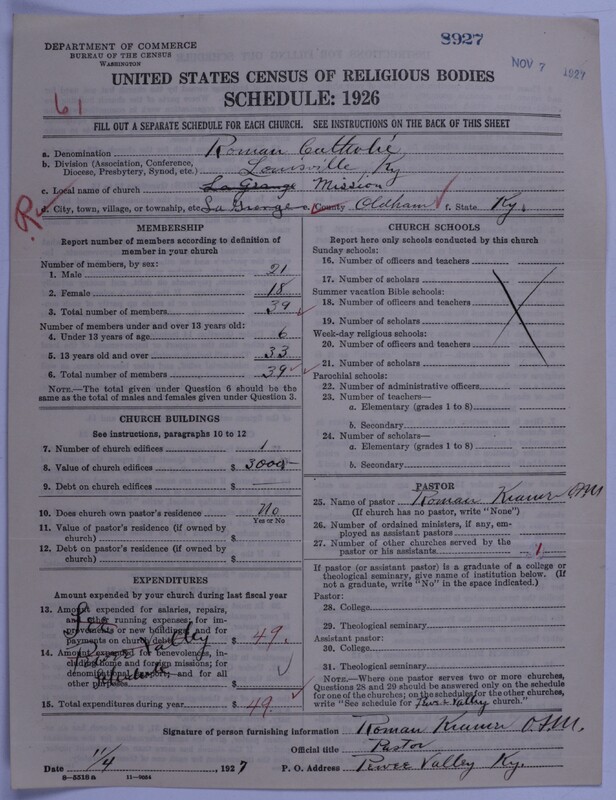 DEPARTMENT OF COMMERCE
BUREAU OF THE CENSUS
WASHINGTON
8927
NOV 7 1927
UNITED STATES CENSUS OF RELIGIOUS BODIES
SCHEDULE: 1926
61
FILL OUT A SEPARATE SCHEDULE FOR EACH CHURCH. SEE INSTRUCTIONS ON THE BACK OF THIS SHEET
a. Denomination Roman Catholic
b. Division (Association, Conference, Diocese, Presbytery, Synod, etc.) Louisville Ky
c. Local name of church La Grange Mission
d. City, town, village, or township, etc. La Grange e. County Oldham f. State Ky.
MEMBERSHIP
Report number of members according to definition of
member in your church
Number of members, by sex:
1. Male 21
2. Female 18
3. Total number of members 39
Number of members under and over 13 years old:
4. Under 13 years of age 6
5. 13 years old and over 33
6. Total number of members 39
NOTE.—The total given under Question 6 should be the
same as the total of males and females given under Question 3.
CHURCH BUILDINGS
See instructions, paragraphs 10 to 12
7. Number of church edifices 1
8. Value of church edifices $ 3000
9. Debt on church edifices $
10. Does church own pastor's residence? No
Yes or No
11. Value of pastor's residence (if owned by
church) $
12. Debt on pastor's residence (if owned by
church) $
EXPENDITURES
Amount expended by your church during last fiscal year
13. Amount expended for salaries, repairs,
and other running expenses; for im-
provements or new buildings; and for
payments on church debt $ 49.
14. Amount expended for benevolences, in-
cluding home and foreign missions; for
denominational support; and for all
other purposes $
See Pewee Valley schedule
15. Total expenditures during year $ 49.
CHURCH SCHOOLS
Report here only schools conducted by this church
Sunday schools:
16. Number of officers and teachers
17. Number of scholars
Summer vacation Bible schools:
18. Number of officers and teachers
19. Number of scholars
Week-day religious schools:
20. Number of officers and teachers
21. Number of scholars
Parochial schools:
22. Number of administrative officers
23. Number of teachers—
a. Elementary (grades 1 to 8)
b. Secondary
24. Number of scholars—
a. Elementary (grades 1 to 8)
b. Secondary
PASTOR
25. Name of pastor Roman Kramer O.F.M.
(If church has no pastor, write "None")
26. Number of ordained ministers, if any, em-
ployed as assistant pastors
27. Number of other churches served by the
pastor or his assistants 1
If pastor (or assistant pastor) is a graduate of a college or
theological seminary, give name of institution below. (If
not a graduate, write "No" in the space indicated.)
Pastor:
28. College
29. Theological seminary
Assistant pastor:
30. College
31. Theological seminary
NOTE.—Where one pastor serves two or more churches,
Questions 28 and 29 should be answered only on the schedule
for one of the churches; on the schedules for the other churches,
write "See schedule for Pewee Valley church."
Signature of person furnishing information Roman Kramer O.F.M.
Official title Pastor
Date 11/4 1927 P. O. Address Pewee Valley Ky.
8—5518a 11—9064